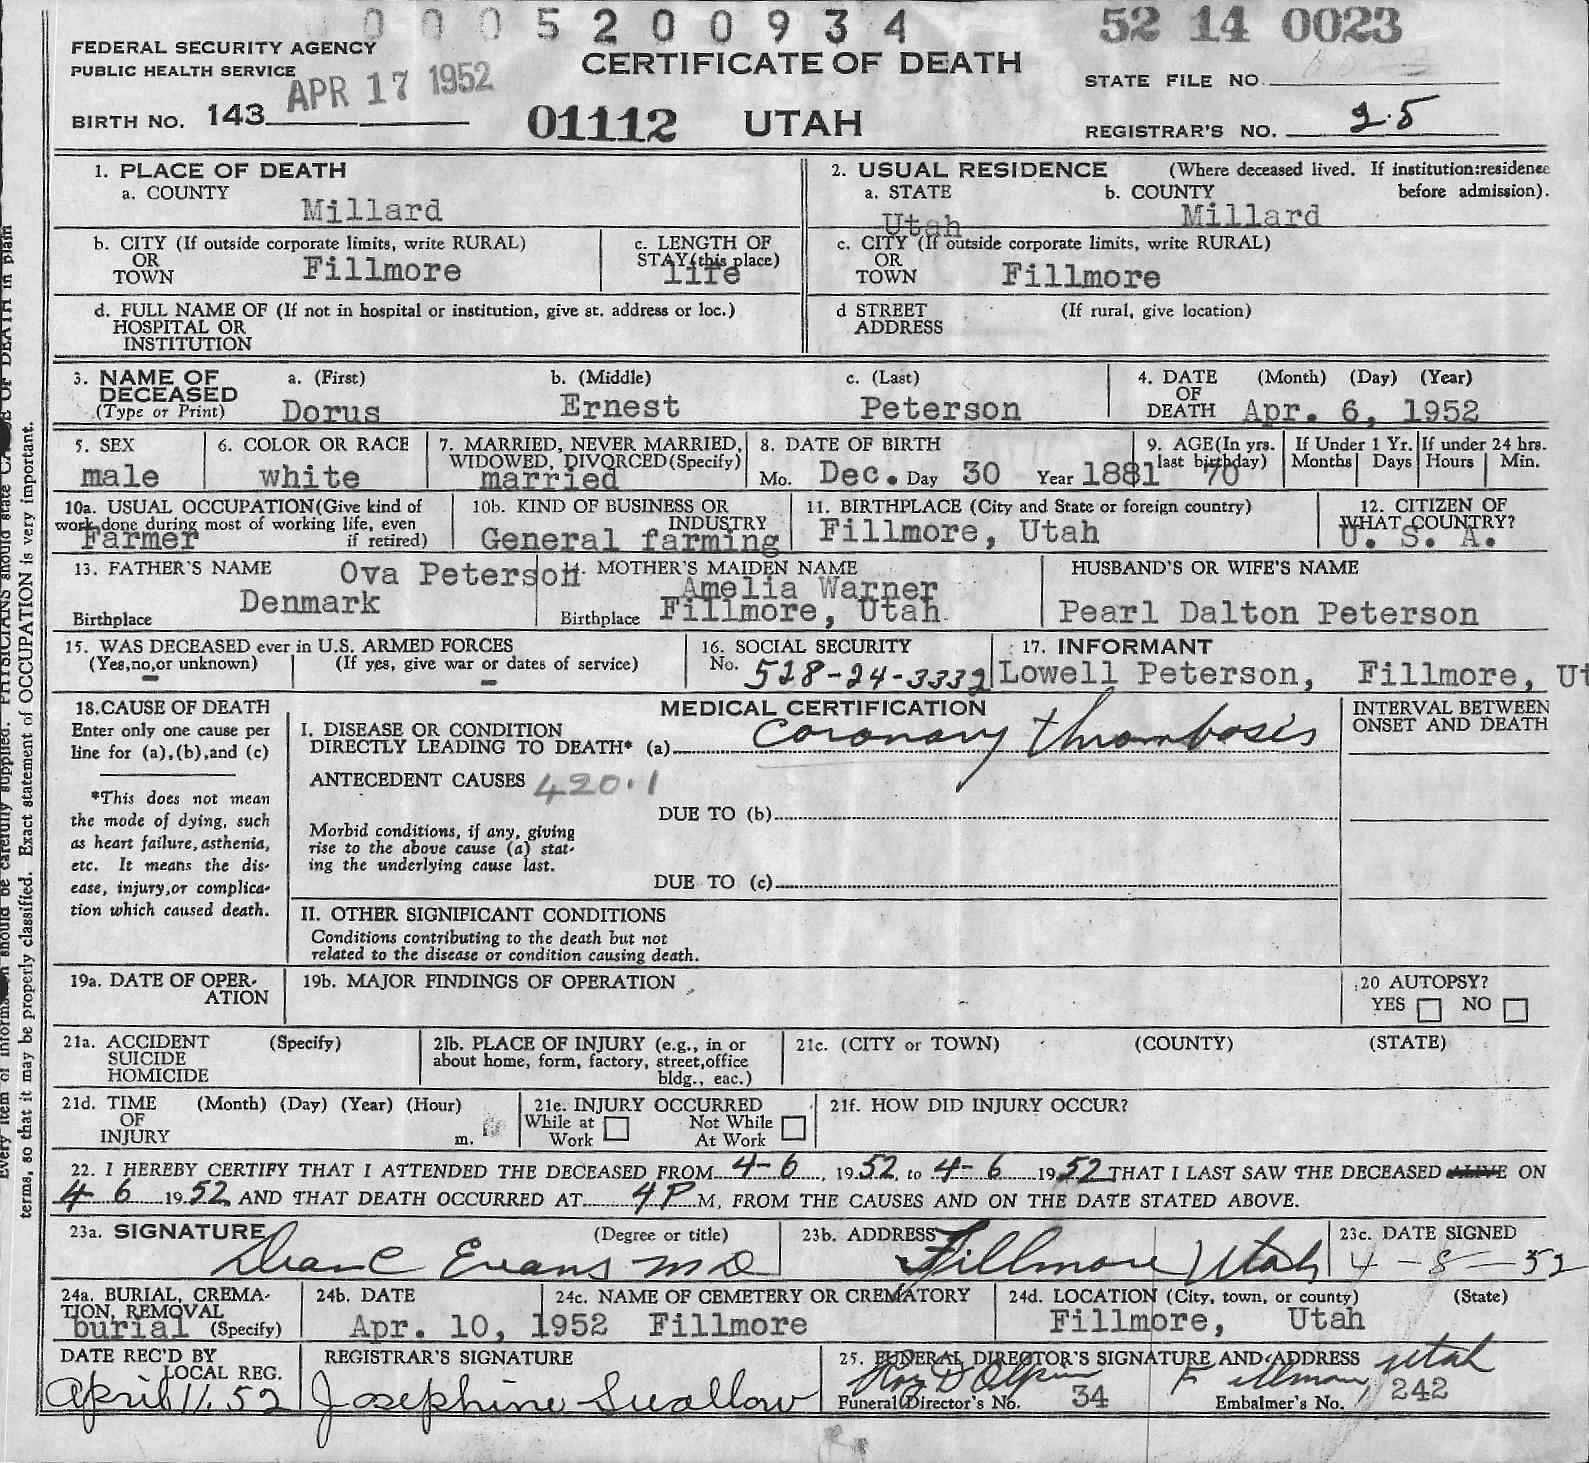 0005200934
52 14 0023
FEDERAL SECURITY AGENCY
PUBLIC HEALTH SERVICE
APR 17 1952
CERTIFICATE OF DEATH
STATE FILE NO.
BIRTH NO. 143
01112 UTAH
REGISTRAR'S NO. 25
1. PLACE OF DEATH
a. COUNTY
Millard
2. USUAL RESIDENCE (Where deceased lived. If institution:residence before admission).
a. STATE
Utah
b. COUNTY
Millard
b. CITY (If outside corporate limits, write RURAL)
OR
TOWN Fillmore
c. LENGTH OF
STAY (this place)
life
c. CITY (If outside corporate limits, write RURAL)
OR
TOWN Fillmore
d. FULL NAME OF (If not in hospital or institution, give st. address or loc.)
HOSPITAL OR
INSTITUTION
d STREET (If rural, give location)
ADDRESS
3. NAME OF
DECEASED
(Type or Print)
a. (First)
Dorus
b. (Middle)
Ernest
c. (Last)
Peterson
4. DATE (Month) (Day) (Year)
OF
DEATH Apr. 6, 1952
5. SEX
male
6. COLOR OR RACE
white
7. MARRIED, NEVER MARRIED,
WIDOWED, DIVORCED (Specify)
married
8. DATE OF BIRTH
Mo. Dec. Day 30 Year 1881
9. AGE (In yrs.
last birthday)
70
If Under 1 Yr.
Months Days
If under 24 hrs.
Hours Min.
10a. USUAL OCCUPATION (Give kind of
work done during most of working life, even
if retired)
Farmer
10b. KIND OF BUSINESS OR
INDUSTRY
General farming
11. BIRTHPLACE (City and State or foreign country)
Fillmore, Utah
12. CITIZEN OF
WHAT COUNTRY?
U. S. A.
13. FATHER'S NAME Ova Peterson
Birthplace Denmark
MOTHER'S MAIDEN NAME
Amelia Warner
Birthplace Fillmore, Utah
HUSBAND'S OR WIFE'S NAME
Pearl Dalton Peterson
15. WAS DECEASED ever in U.S. ARMED FORCES
(Yes,no,or unknown) (If yes, give war or dates of service)
– –
16. SOCIAL SECURITY
No. 528-24-3332
17. INFORMANT
Lowell Peterson, Fillmore, Ut
18.CAUSE OF DEATH
Enter only one cause per
line for (a),(b),and (c)
*This does not mean
the mode of dying, such
as heart failure, asthenia,
etc. It means the dis-
ease, injury,or complica-
tion which caused death.
MEDICAL CERTIFICATION
I. DISEASE OR CONDITION
DIRECTLY LEADING TO DEATH* (a) Coronary thrombosis
ANTECEDENT CAUSES 420.1
DUE TO (b)
Morbid conditions, if any, giving
rise to the above cause (a) stat-
ing the underlying cause last.
DUE TO (c)
II. OTHER SIGNIFICANT CONDITIONS
Conditions contributing to the death but not
related to the disease or condition causing death.
INTERVAL BETWEEN
ONSET AND DEATH
19a. DATE OF OPER-
ATION
19b. MAJOR FINDINGS OF OPERATION
20 AUTOPSY?
YES NO
21a. ACCIDENT (Specify)
SUICIDE
HOMICIDE
21b. PLACE OF INJURY (e.g., in or
about home, form, factory, street,office
bldg., eac.)
21c. (CITY or TOWN) (COUNTY) (STATE)
21d. TIME (Month) (Day) (Year) (Hour)
OF
INJURY m.
21e. INJURY OCCURRED
While at Work Not While At Work
21f. HOW DID INJURY OCCUR?
22. I HEREBY CERTIFY THAT I ATTENDED THE DECEASED FROM 4-6, 1952, to 4-6 1952 THAT I LAST SAW THE DECEASED ALIVE ON
4 6 1952 AND THAT DEATH OCCURRED AT 4 P M, FROM THE CAUSES AND ON THE DATE STATED ABOVE.
23a. SIGNATURE (Degree or title)
Dean C Evans MD
23b. ADDRESS
Fillmore Utah
23c. DATE SIGNED
4-8-52
24a. BURIAL, CREMA-
TION, REMOVAL
burial (Specify)
24b. DATE
Apr. 10, 1952
24c. NAME OF CEMETERY OR CREMATORY
Fillmore
24d. LOCATION (City, town, or county) (State)
Fillmore, Utah
DATE REC'D BY
LOCAL REG.
April 11, 52
REGISTRAR'S SIGNATURE
Josephine Swallow
25. FUNERAL DIRECTOR'S SIGNATURE AND ADDRESS
Fillmore, Utah
Funeral Director's No. 34
Embalmer's No. 242
terms, so that it may be properly classified. Exact statement of OCCUPATION is very important.